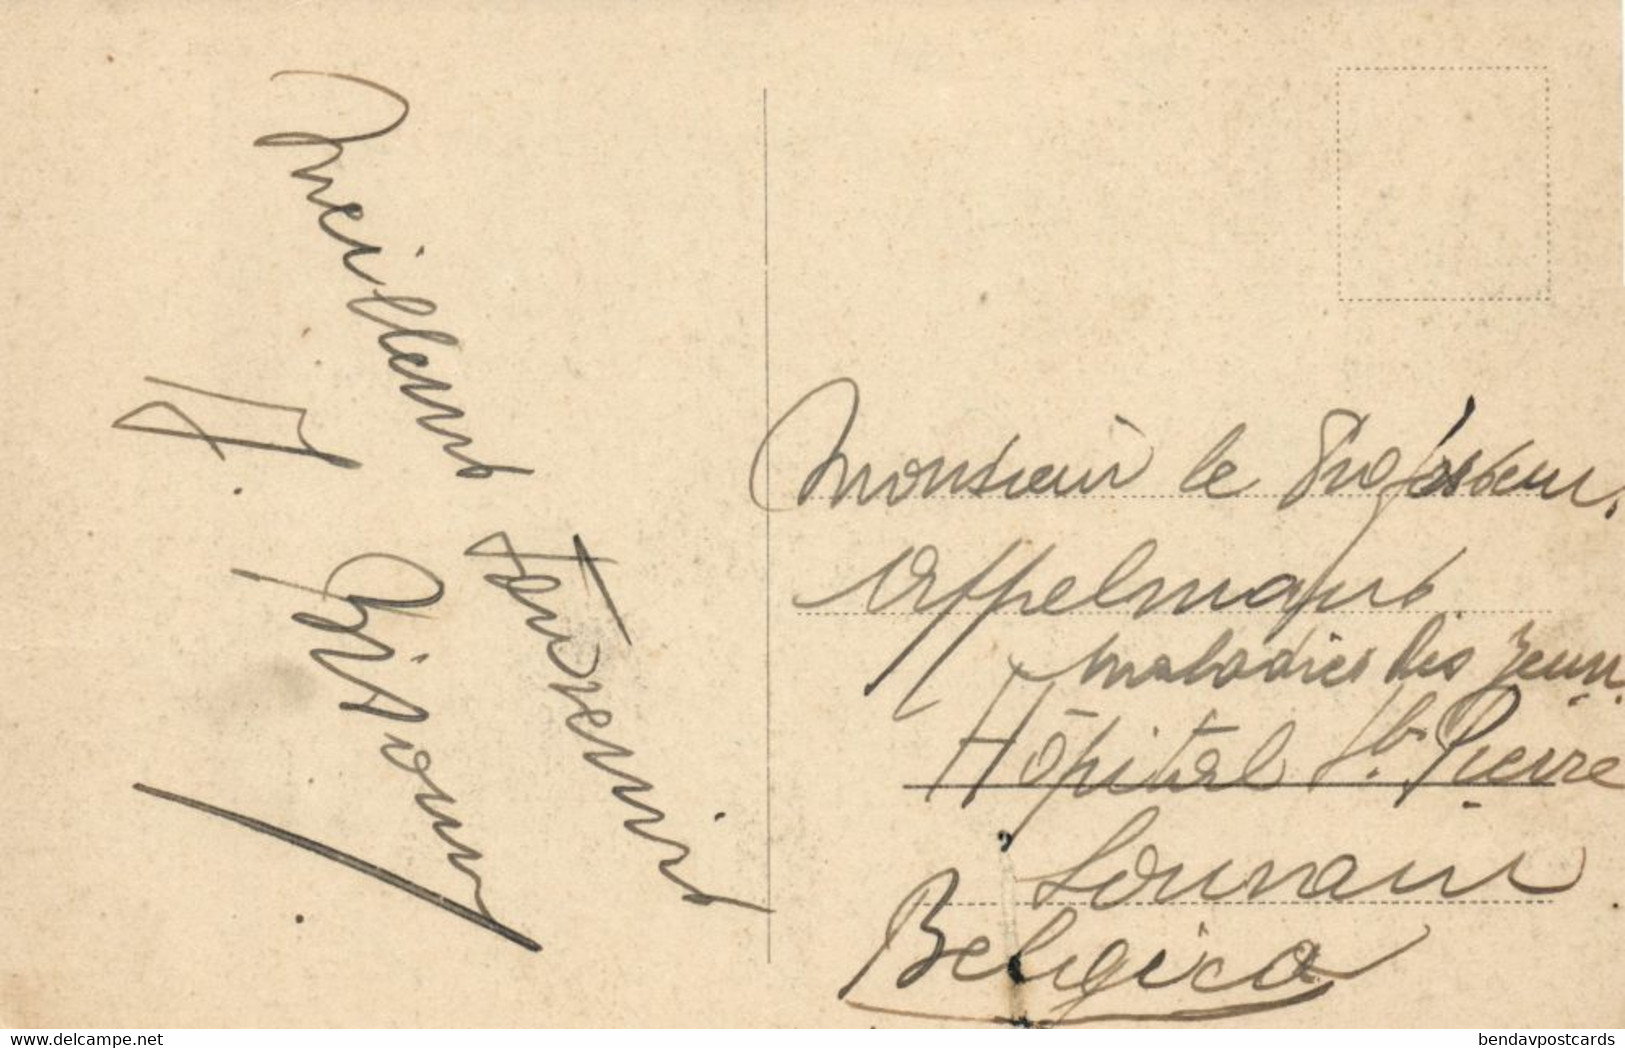 Meilleurs
souvenirs
Monsieur le Professeur
Appelmans
maladies des yeux
Hôpital St. Pierre
Louvain
Belgica
www.delcampe.net
bendavpostcards